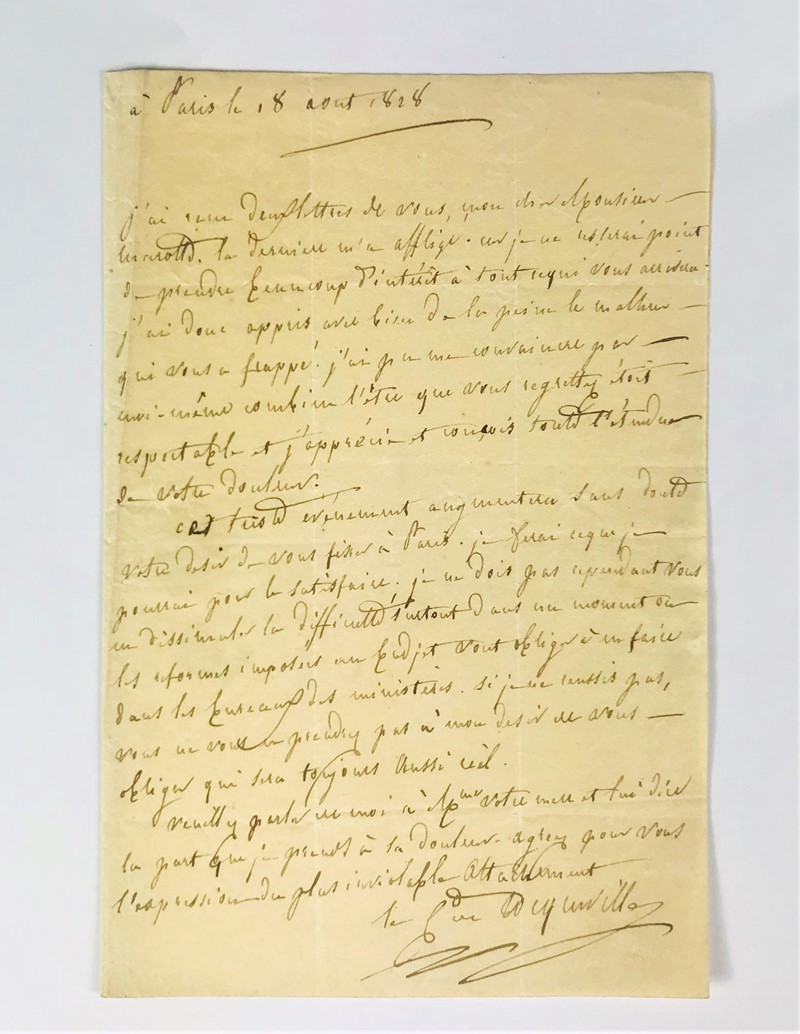 à Paris le 18 aout 1828
j'ai reçu deux lettres de vous, mon cher Monsieur
la derniere m'a affligé. car je ne cesserai point
de prendre beaucoup d'intérêt à tout ce qui vous arrivera.
j'ai donc appris avec bien de la peine le malheur
qui vous a frappé. j'ai pu me convaincre par
moi-même combien l'être que vous regrettez étoit
respectable et j'apprécie et conçois toute l'étendue
de votre douleur.
cet triste evénement augmentera sans doute
votre desir de vous fixer à Paris. je ferai ce que je
pourrai pour le satisfaire. je ne dois pas cependant vous
en dissimuler la difficulté surtout dans un moment où
les reformes imposées au budjet vont obliger à en faire
dans les bureaux des ministères. si je ne reussis pas,
vous ne vous en prendrez pas à mon desir de vous
obliger qui sera toujours aussi réel.
veuillez parler de moi à Mme votre mere et lui dire
la part que je prends à sa douleur. agréez pour vous
l'expression du plus inviolable attachement
le